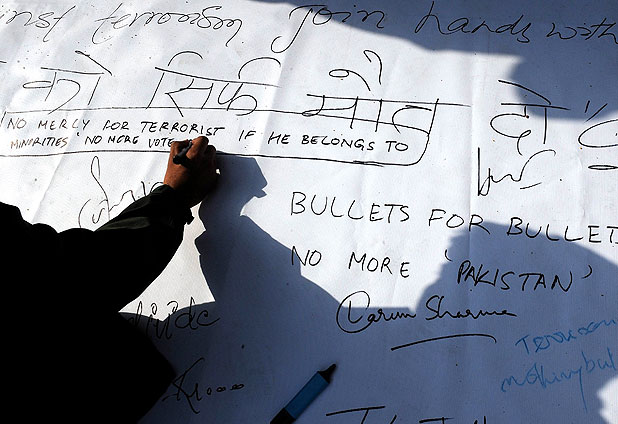 terrorism Join hands with
को सिर्फ मौत दो
NO MERCY FOR TERRORIST IF HE BELONGS TO
MINORITIES NO MORE VOTE
BULLETS FOR BULLETS
NO MORE 'PAKISTAN'
Sharma
Terrorism
nothing but